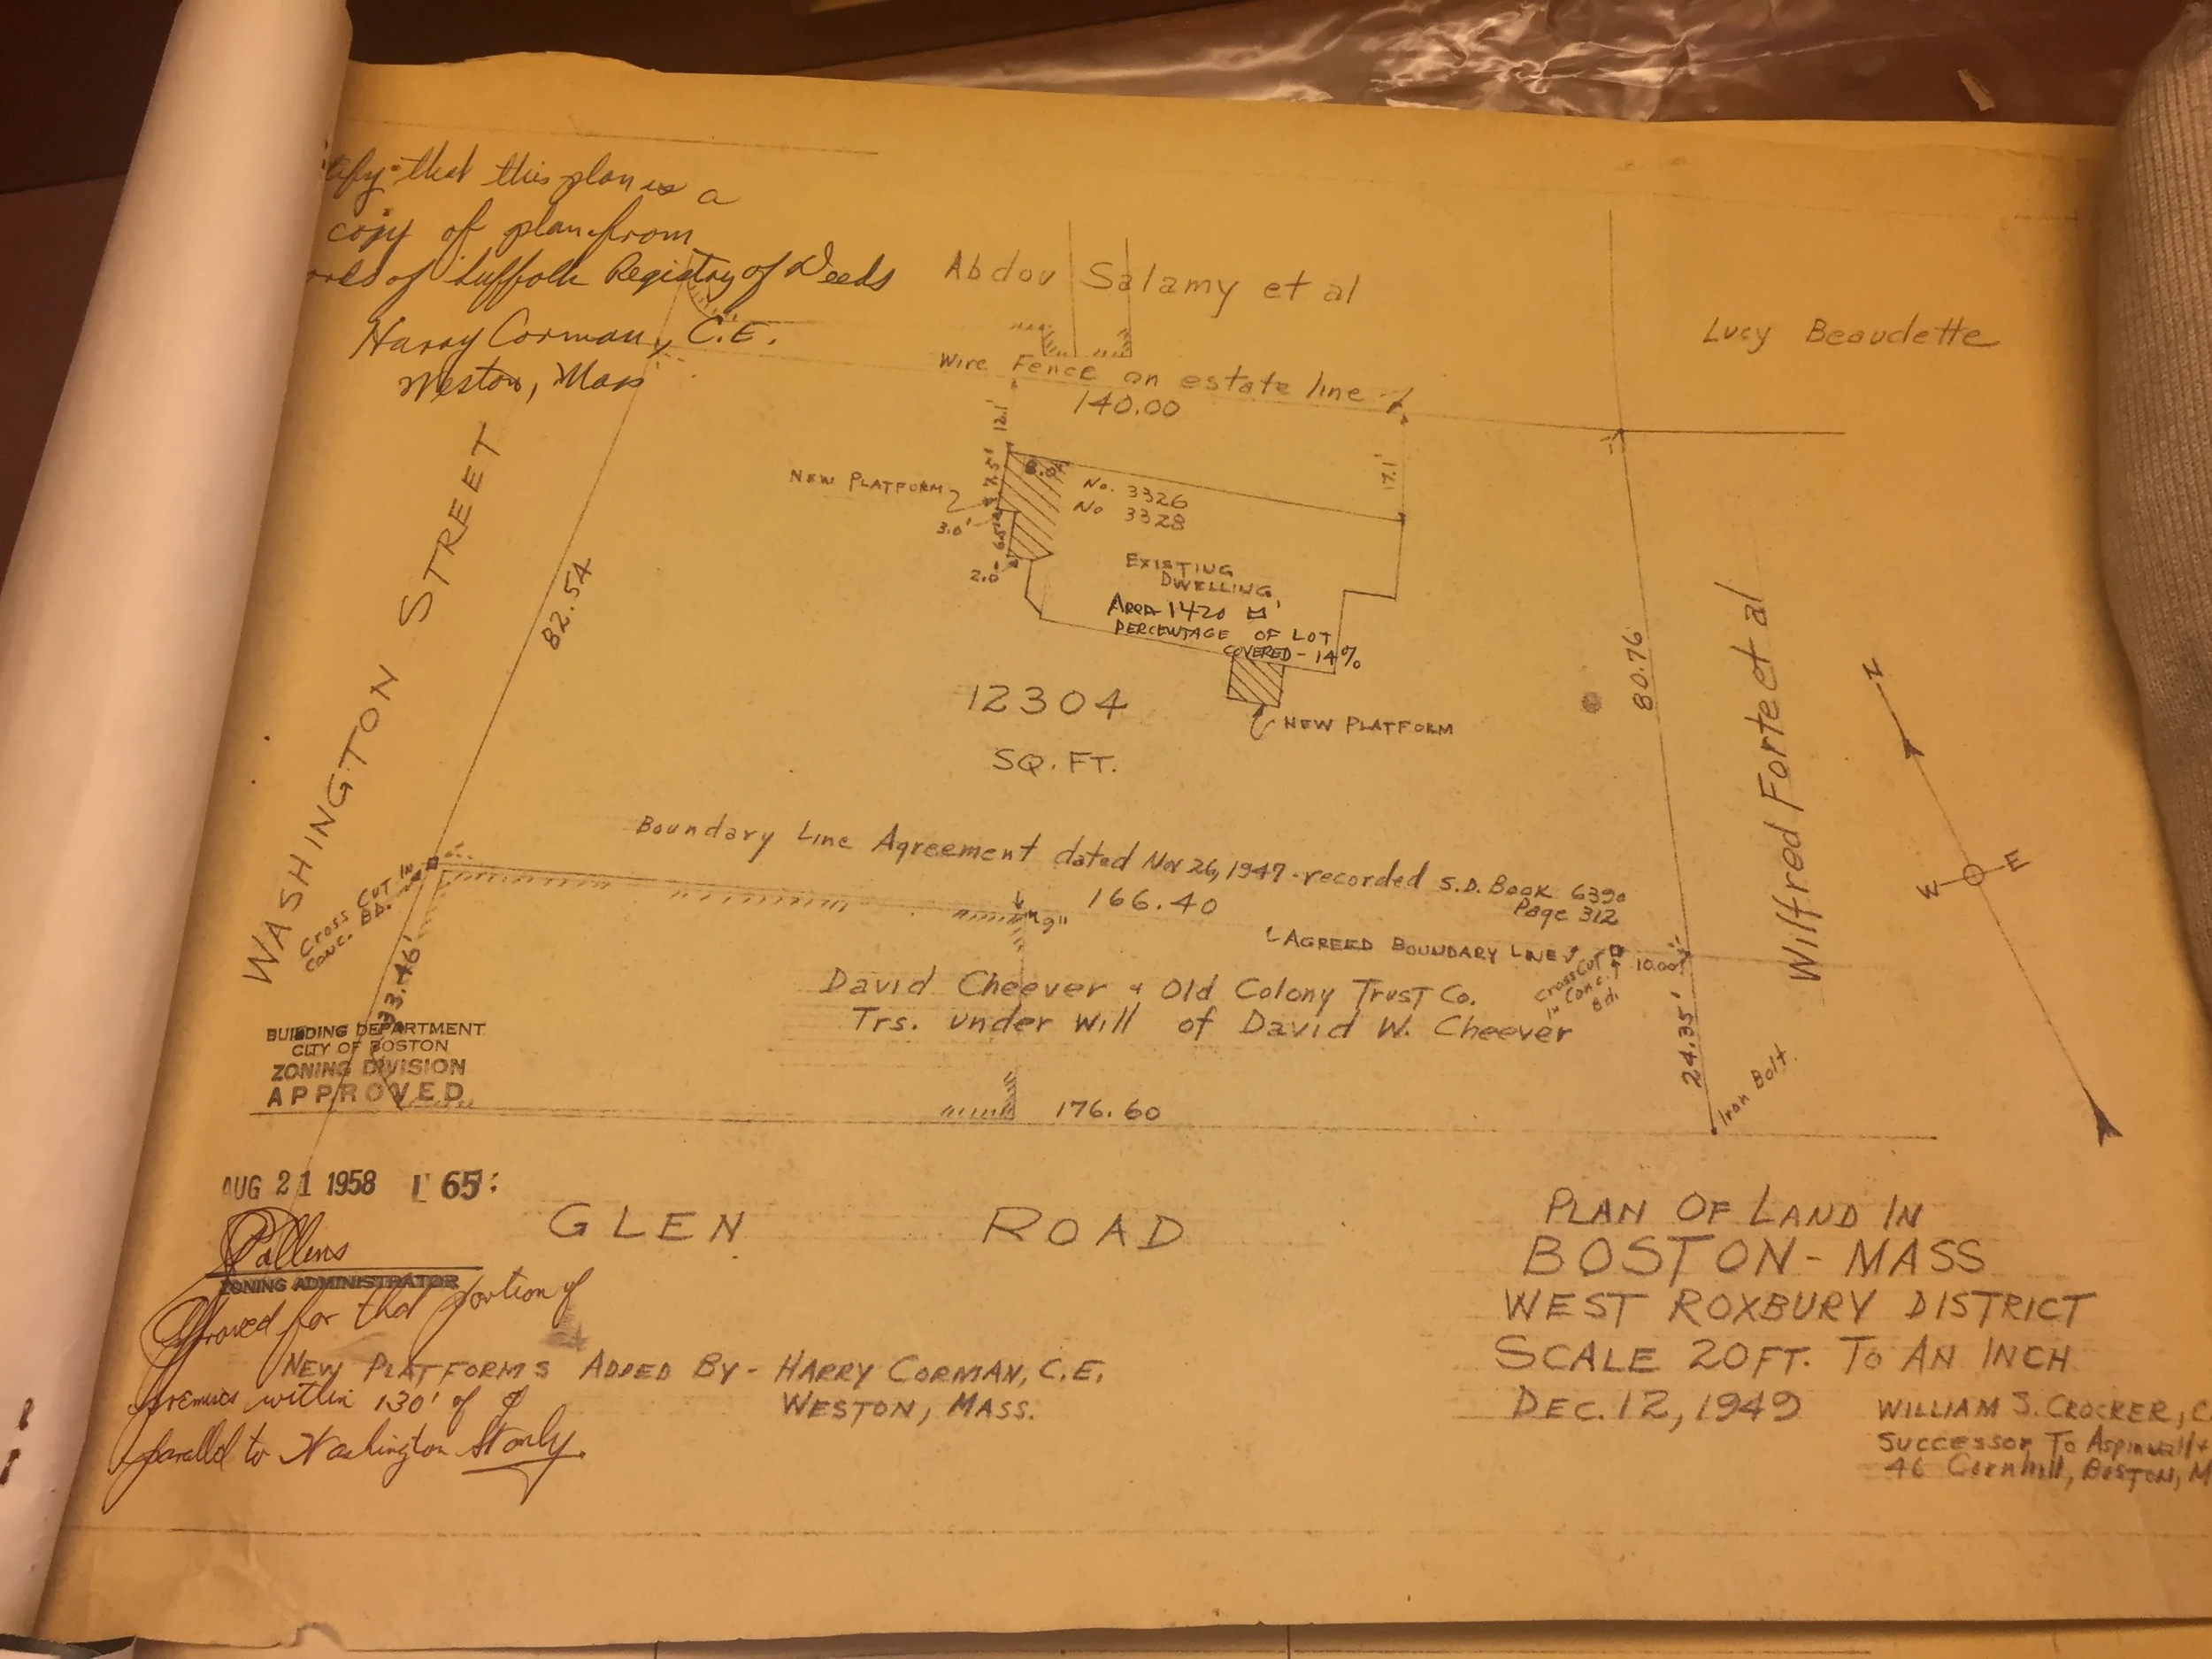 that this plan is a
copy of plan from
of Suffolk Registry of Deeds
Harry Corman, C.E.
Weston, Mass
Abdou Salamy et al
Lucy Beaudette
Wire Fence on estate line
140.00
12.1'
17.1'
NEW PLATFORM
7.5'
8.0'
No. 3326
No 3328
3.0'
6.5'
2.0'
EXISTING
DWELLING
AREA 1420 □'
PERCENTAGE OF LOT
COVERED - 14%
NEW PLATFORM
12304
SQ. FT.
WASHINGTON STREET
82.54
80.76
Wilfred Forte et al
N
W
E
Boundary Line Agreement dated Nov 26, 1947 - recorded S.D. Book 6390
Page 312
166.40
9"
CROSS CUT IN
CONC. BD.
AGREED BOUNDARY LINE
10.00'
Cross Cut
in Conc.
Bd.
David Cheever & Old Colony Trust Co.
Trs. under Will of David W. Cheever
24.35'
Iron Bolt
BUILDING DEPARTMENT
CITY OF BOSTON
ZONING DIVISION
APPROVED
176.60
AUG 21 1958
65
GLEN ROAD
ZONING ADMINISTRATOR
Approved for that portion of
premises within 130' of
parallel to Washington St only
NEW PLATFORMS ADDED BY - HARRY CORMAN, C.E.
WESTON, MASS.
PLAN OF LAND IN
BOSTON - MASS
WEST ROXBURY DISTRICT
SCALE 20 FT. TO AN INCH
DEC. 12, 1949
WILLIAM S. CROCKER, C
SUCCESSOR TO Aspinwall &
46 Cornhill, BOSTON, M